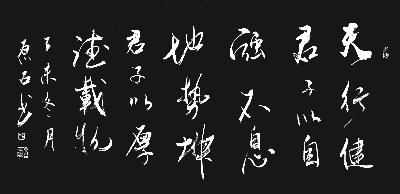 天行健
君子以自
强不息
地势坤
君子以厚
德載物
丁未冬月